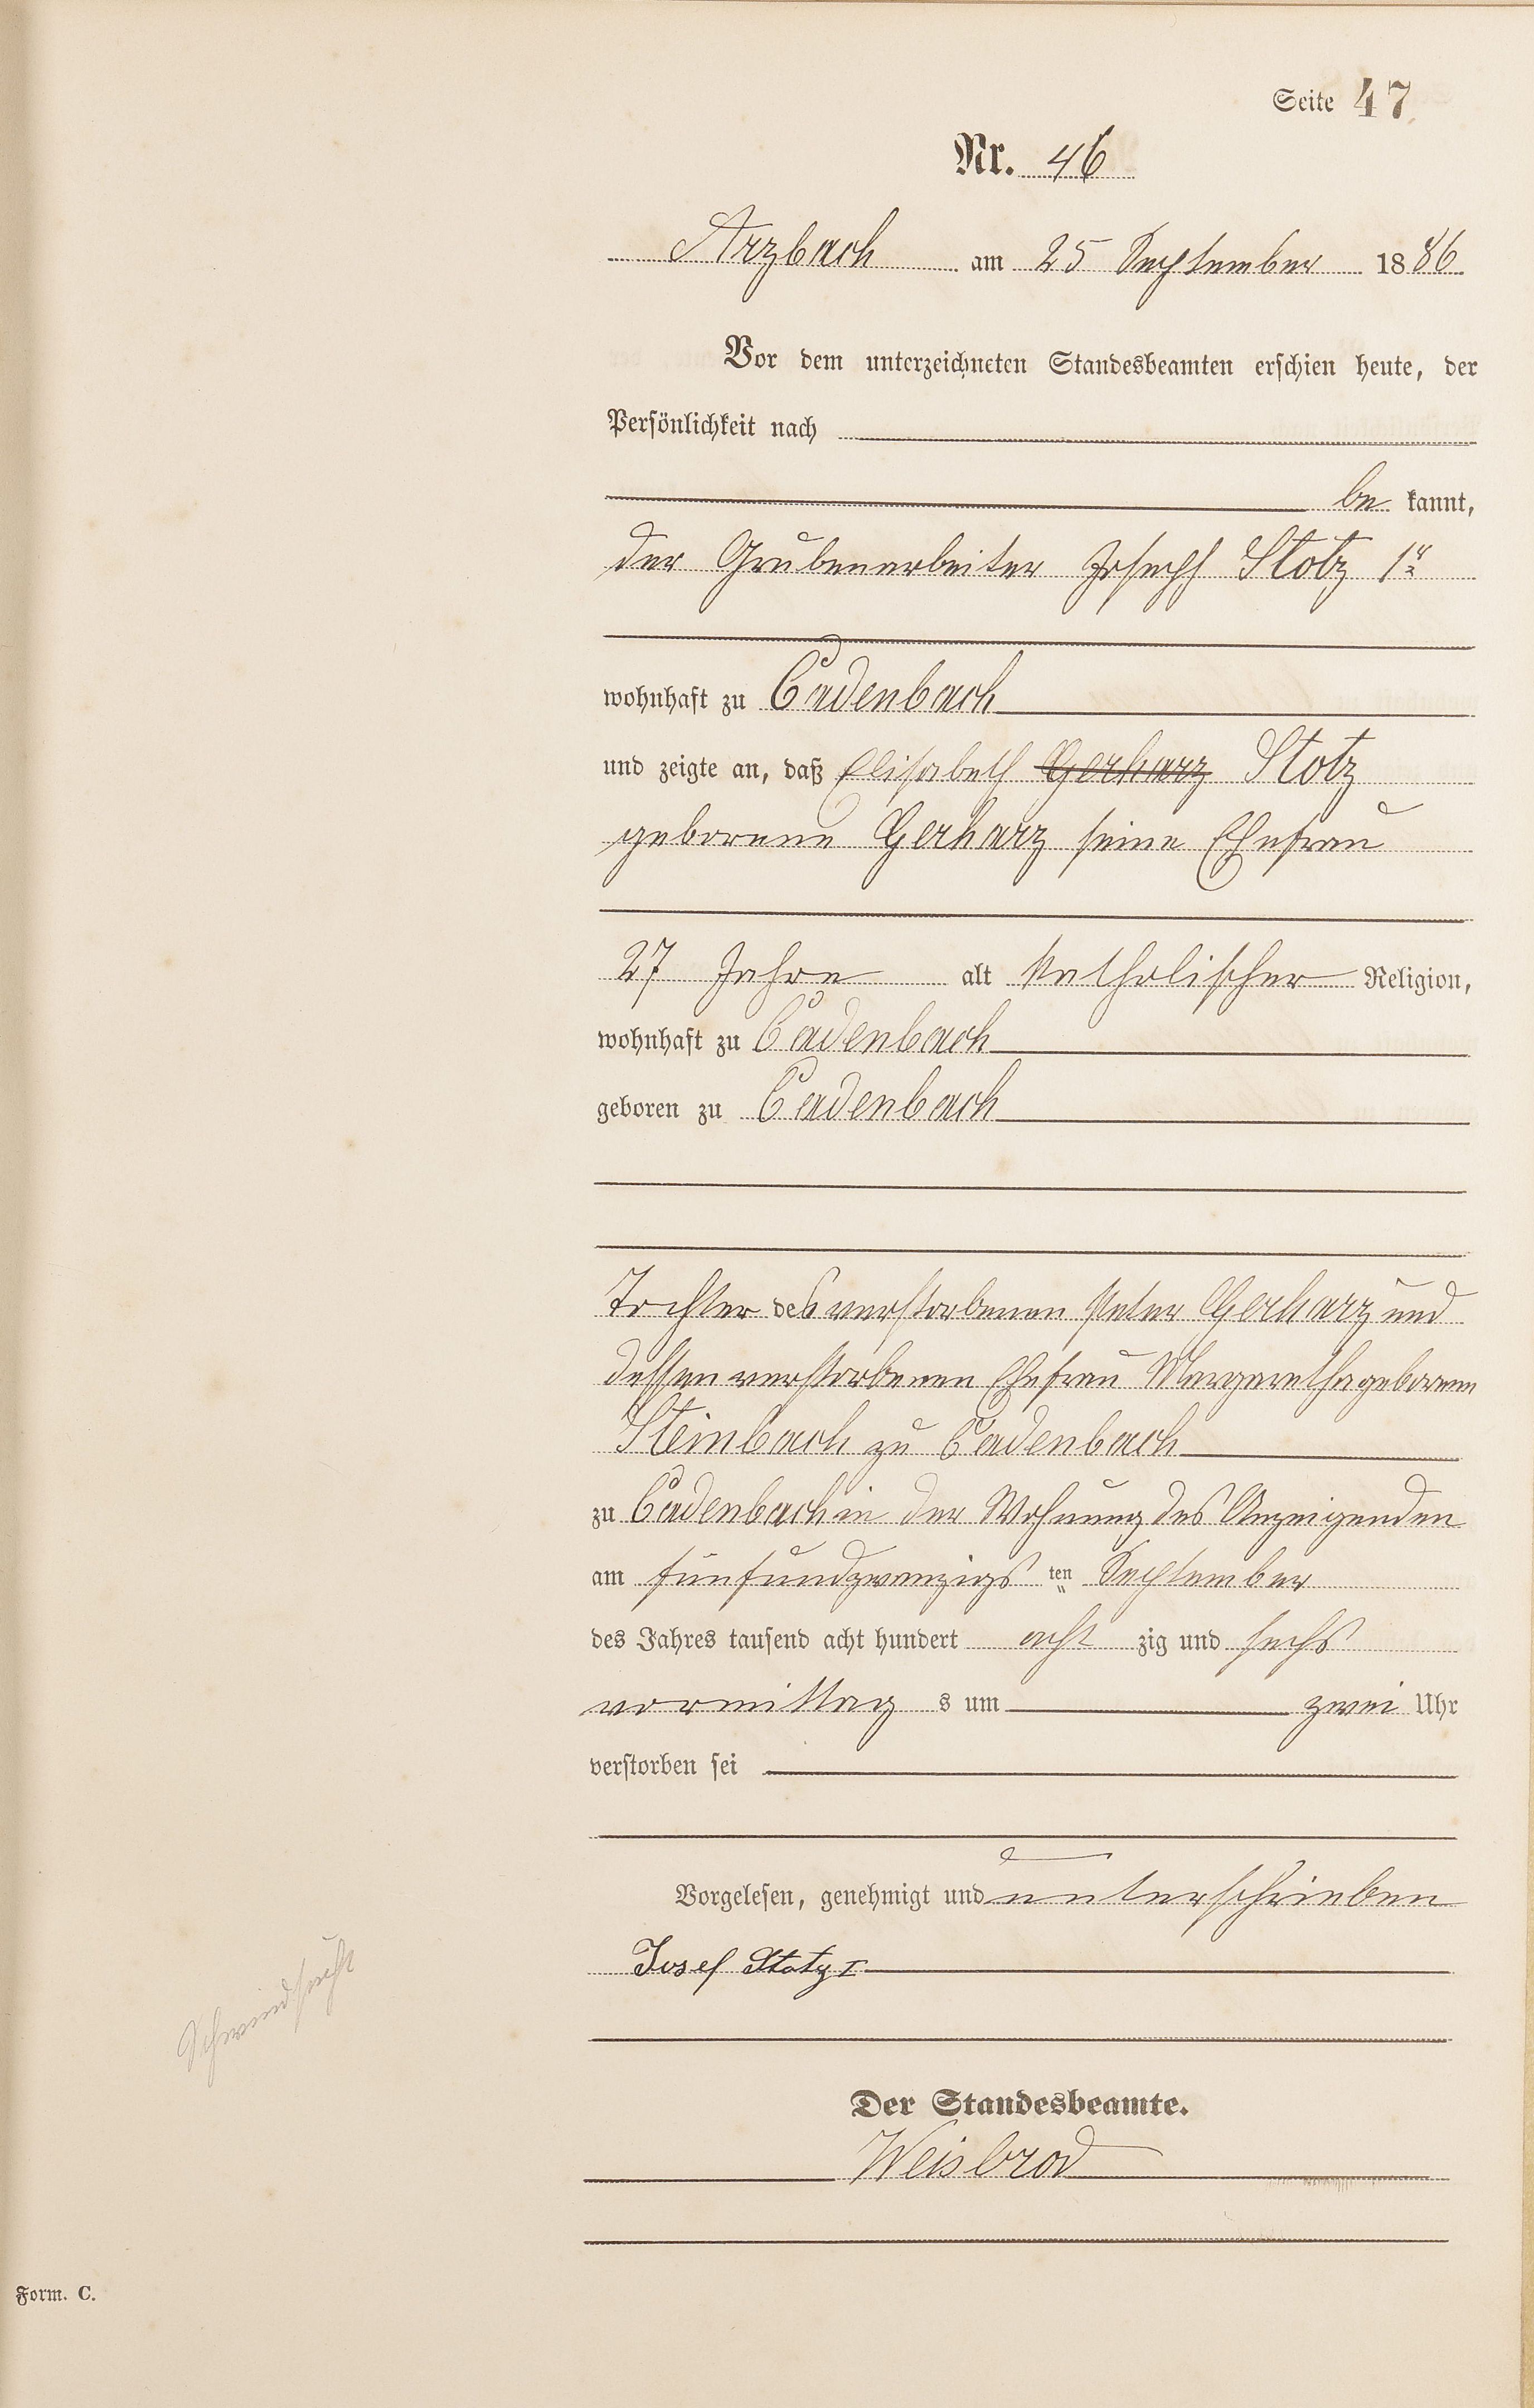 Seite 47
Nr. 46
Arzbach am 25 September 1886
Vor dem unterzeichneten Standesbeamten erschien heute, der
Persönlichkeit nach
be kannt,
der Grubenarbeiter Joseph Stotz 1r
wohnhaft zu Cadenbach
und zeigte an, daß Elisabeth Gerharz Stotz
geborene Gerharz seine Ehefrau
27 Jahre alt katholischer Religion,
wohnhaft zu Cadenbach
geboren zu Cadenbach
Tochter des verstorbenen Peter Gerharz und
dessen verstorbenen Ehefrau Margaretha geborenen
Steinbach zu Cadenbach
zu Cadenbach in der Wohnung des Anzeigenden
am fünfundzwanzigs ten September
des Jahres tausend acht hundert acht zig und sechs
vormittag s um zwei Uhr
verstorben sei
Vorgelesen, genehmigt und unterschrieben
Josef Stotz I
Schwindsucht
Der Standesbeamte.
Weisbrod
Form. C.